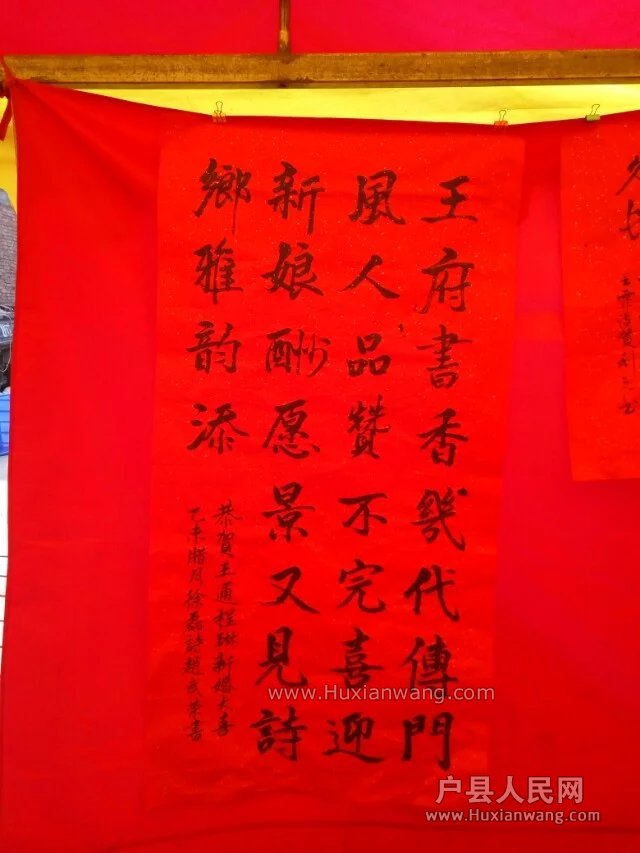 王府書香幾代傳門
風人品贊不完喜迎
新娘酬愿景又見詩
鄉雅韵添
恭賀王通程琳新婚大喜
乙未腊月徐磊詩趙武榮書
www.Huxianwang.com
户县人民网
www.Huxianwang.com